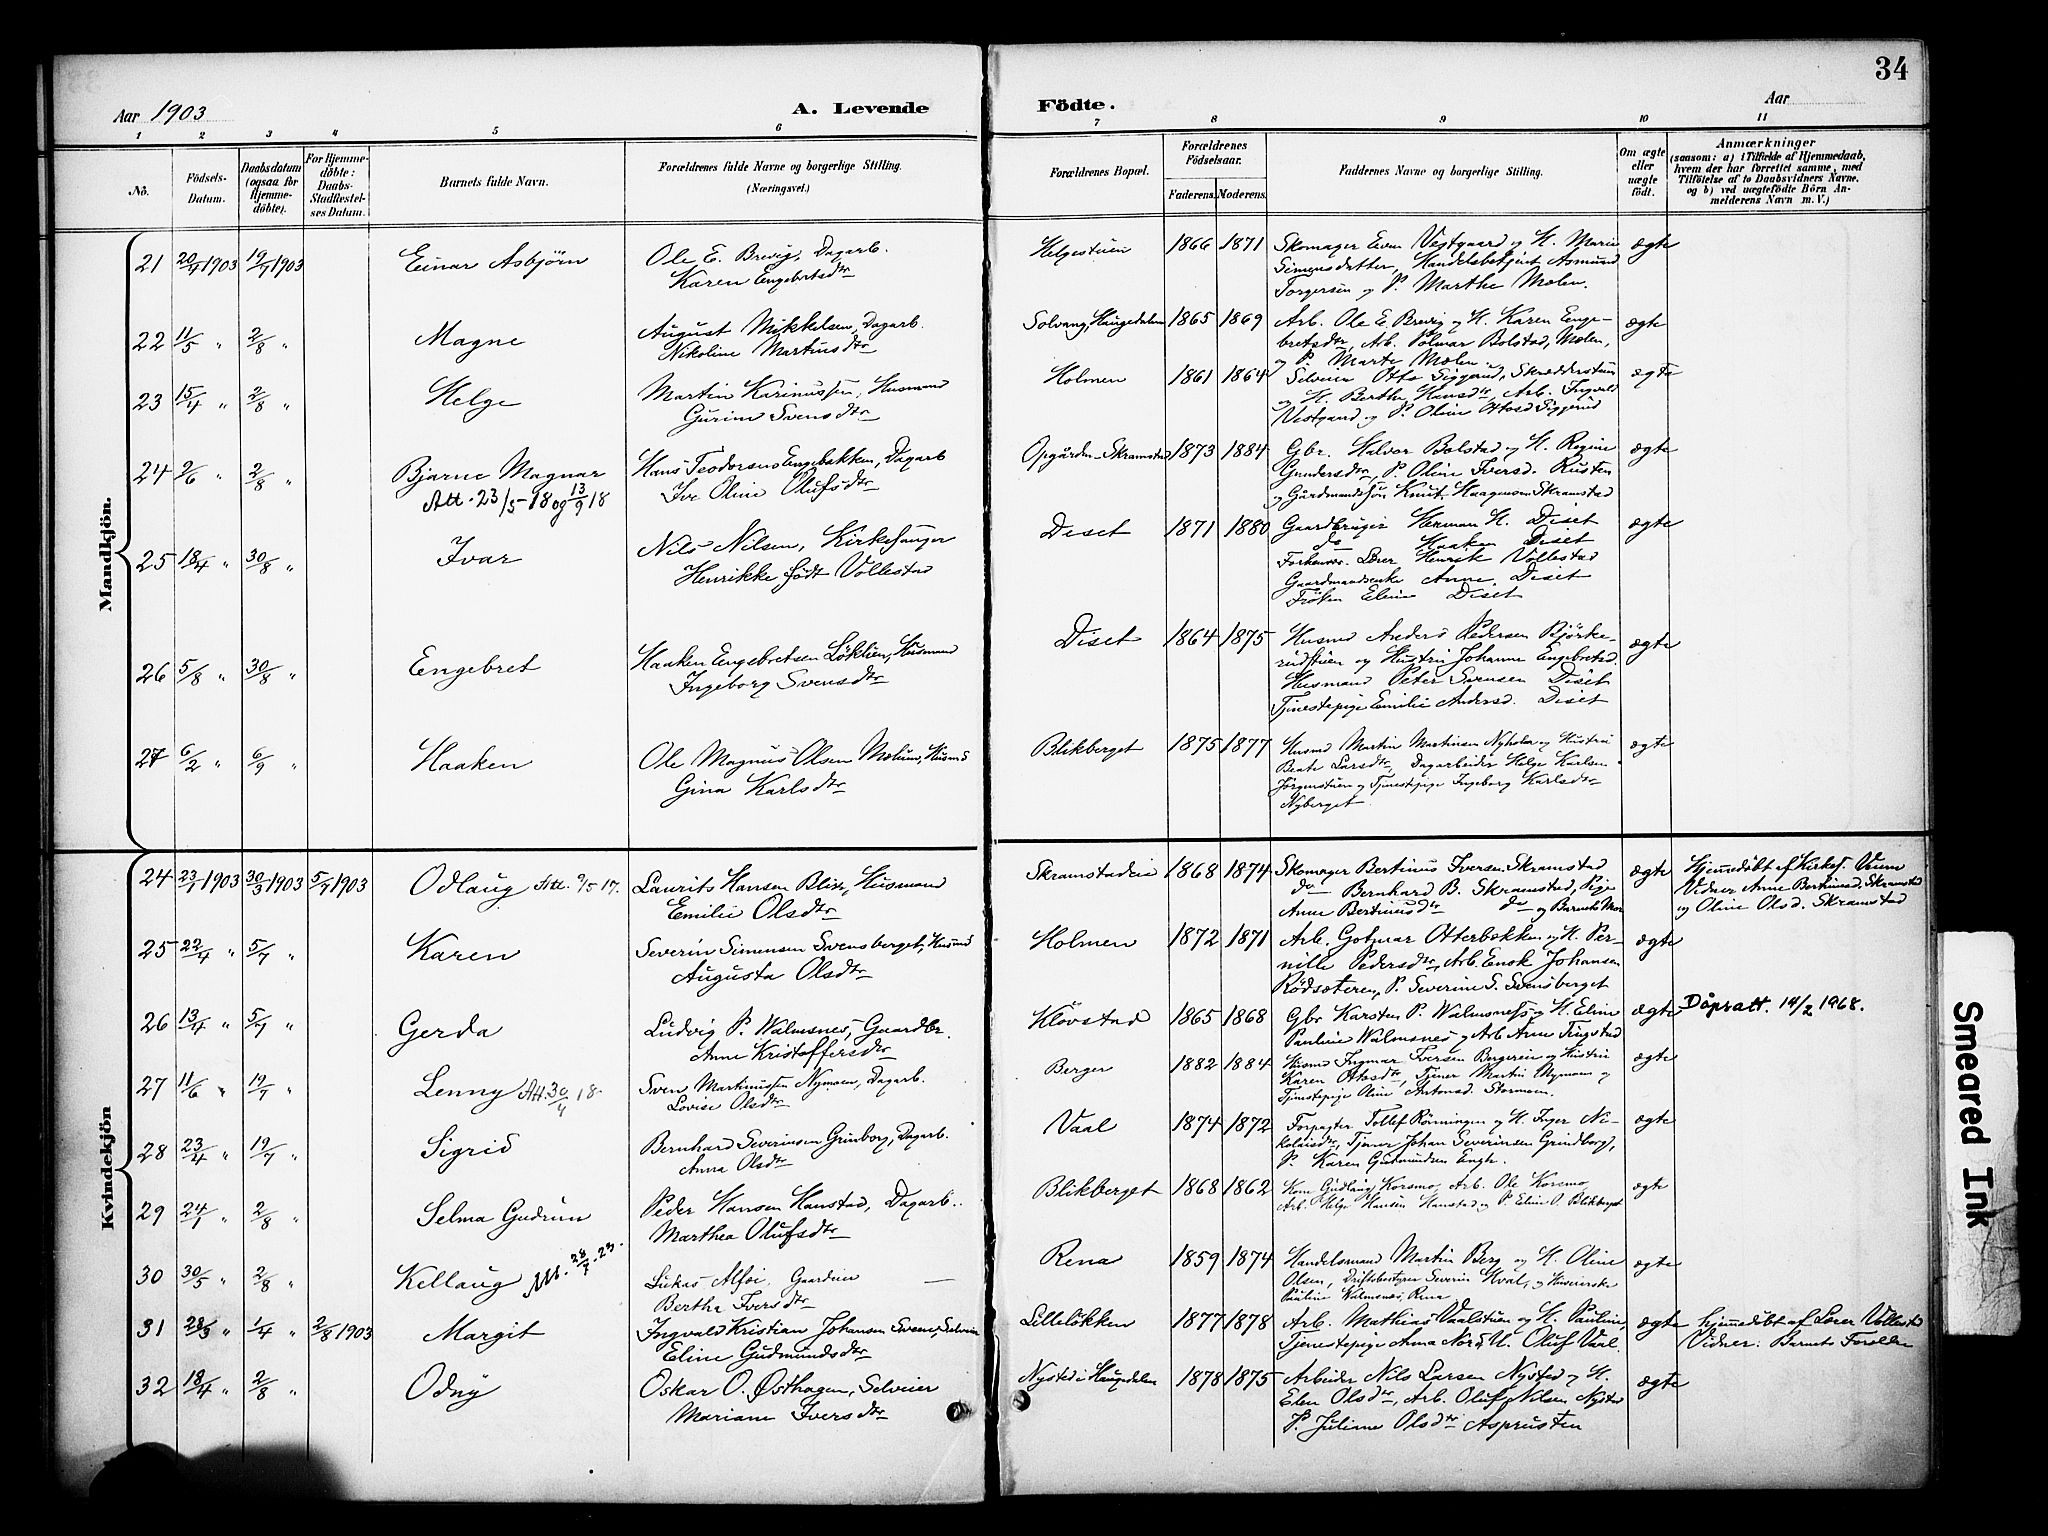 34
Aar 1903
A. Levende
Födte.
Aar
1 2 3 4 5 6 7 8 9 10 11
No.
Födsels-Datum.
Daabsdatum (ogsaa for Hjemme-döbte).
For Hjemme-döbte: Daabs-Stadfæstel-ses Datum.
Barnets fulde Navn.
Forældrenes fulde Navne og borgerlige Stilling.
(Næringsvei.)
Forældrenes Bopæl.
Forældrenes Födselsaar.
Faderens. Moderens.
Faddernes Navne og borgerlige Stilling.
Om ægte eller uægte født.
Anmærkninger
(saasom: a) i Tilfælde af Hjemmedaab,
hvem der har forrettet samme, med
Tilföielse af to Daabsvidners Navne,
og b) ved uægtefödte Börn An-
melderens Navn m. V.)
Mandkjön.
21 20/4 1903 19/7 1903 Einar Asbjörn Ole E. Brevig, Dagarb.
Karen Engebretsdtr
Helgestuen 1866 1871 Skomager Even Vestgaard og H. Marie
Simensdatter, Handelsbetjent Asmund
Torgersen og P. Marthe Mælen. ægte
22 11/5 " 2/8 " Magne August Mikkelsen, Dagarb.
Nikoline Martinsdtr
Solvang, Haugedalen 1865 1869 Arb. Ole E. Brevig og H. Karen Enge-
bretsdtr, Arb. Polmar Bolstad, Mælen,
og P. Marte Mælen. ægte
23 15/4 " 2/8 " Helge Martin Karinussen, Husmand
Gurine Svensdtr
Holmen 1861 1864 Selveier Otto Siggerud, Skrædderstuen
og H. Berthe Hansdtr, Arb. Ingvald
Vestgaard og P. Oline Ottosd Siggerud ægte
24 2/6 " 2/8 " Bjarne Magnar
Att. 23/5-18 og 13/9 18
Hans Teodorsen Engebakken, Dagarb
Ive Oline Olufsdtr
Opgården-Skramstad 1873 1884 Gbr. Halvor Bolstad og H. Regine
Gundersdtr, P. Oline Iversd. Rusten
og Gårdmandssön Knut Haagensen Skramstad ægte
25 18/4 " 30/8 " Ivar Nils Nilsen, Kirkesanger
Henrikke födt Vollestad
Diset 1871 1880 Gaardbruger Herman H. Diset
do Haaken Diset
Forhenv. Lærer Henrik Vollestad
Gaardmandsenke Anne Diset
Fröken Eline Diset ægte
26 5/8 " 30/8 " Engebret Haaken Engebretsen Löklien, Husmand
Ingeborg Svensdtr
Diset 1864 1875 Husmd Anders Pedersen Björke-
rudstuen og Hustru Johanne Engebretsd.
Husmand Peter Svensen Diset
Tjenestepige Emilie Andersd. Diset ægte
27 6/2 " 6/9 " Haaken Ole Magnus Olsen Mælum, Husmd
Gina Karlsdtr
Blikberget 1875 1877 Husmd Martin Martinsen Nyholm og Hustru
Beate Larsdtr, Dagarbeider Helge Karlsen
Jörgenstuen og Tjenestepige Ingeborg Karlsdtr
Nyberget. ægte
Kvindekjön
24 23/1 1903 30/3 1903 5/7 1903 Odlaug Att. 9/5 17. Laurits Hansen Blixt, Husmand
Emilie Olsdtr
Skramstadeie 1868 1874 Skomager Bertinus Iversen Skramstad
do Bernhard B. Skramstad, Pige
Anne Bertinusdtr do og Barnets Mor ægte
Hjemmedöbt af Kirkes. Veum
Vidner Anne Bertinusd. Skramstad
og Oline Olsd. Skramstad
25 22/4 " 5/7 " Karen Severin Simensen Svensberget, Husmd
Augusta Olsdtr
Holmen 1872 1871 Arb. Gotmar Otterbekken og H. Per-
nille Pedersdtr, Arb. Enok Johansen
Rödsæteren, P. Severine S. Svensberget ægte
26 13/4 " 5/7 " Gerda Ludvig P. Walmsnes, Gaardbr.
Anne Kristoffersdtr
Klövstad 1865 1868 Gbr Karsten P. Walmsnes og H. Eline
Pauline Walmsnes og Arb Arne Tingstad ægte
Dåpsatt. 14/2 1968.
27 11/6 " 19/7 " Lenny Att. 30/4 18- Sven Martinussen Nymoen, Dagarb.
Lovise Olsdtr
Berger 1882 1884 Husmd Ingmar Iversen Bergereie og Hustru
Karen Ottosdtr, Tjener Martin Nymoen og
Tjenestepige Oline Antonsd. Stormoen. ægte
28 23/4 " 19/7 " Sigrid Bernhard Severinsen Grinborg, Dagarb.
Anna Olsdtr
Vaal 1874 1872 Forpagter Tollef Rönningen og H. Inger Ni-
kolaisdtr, Tjener Johan Severinsen Grindborg,
P. Karen Gudmundsen Engh. ægte
29 24/1 " 2/8 " Selma Gudrun Peder Hansen Hanstad, Dagarb.
Marthea Olufsdtr
Blikberget 1868 1862 Kone Gudlaug Korsmo, Arb. Ole Korsmo,
Arb. Helge Hansen Hanstad og P. Eline O. Blikberget ægte
30 30/5 " 2/8 " Kellaug Att. 28/7-23. Lukas Alfoi, Gaardeier
Berthe Iversdtr
Rena 1859 1874 Handelsmand Martin Berg og H. Oline
Olsen, Driftsbestyrer Severin Kval, og Husmandske
Pauline Walmsnes, Rena ægte
31 28/3 " 1/4 " 2/8 1903 Margit Ingvald Kristian Johansen Sveen, Selveier
Eline Gudmundsdtr
Lillelökken 1877 1878 Arb. Mathias Vaalstuen og H. Pauline,
Tjenestepige Anna Nord, U. Oluf Vaal. ægte
hjemmedöbt af Lærer Vollestad
Vidner: Barnets Forældre
32 18/4 " 2/8 " Odny Oskar O. Østhagen, Selveier
Mariane Iversdtr
Nysted i Haugedalen 1878 1875 Arbeider Nils Larsen Nysted og H.
Elen Olsdtr, Arb. Oluf Nilsen Nysted
P. Juline Olsdtr Asprusten ægte
Smeared Ink